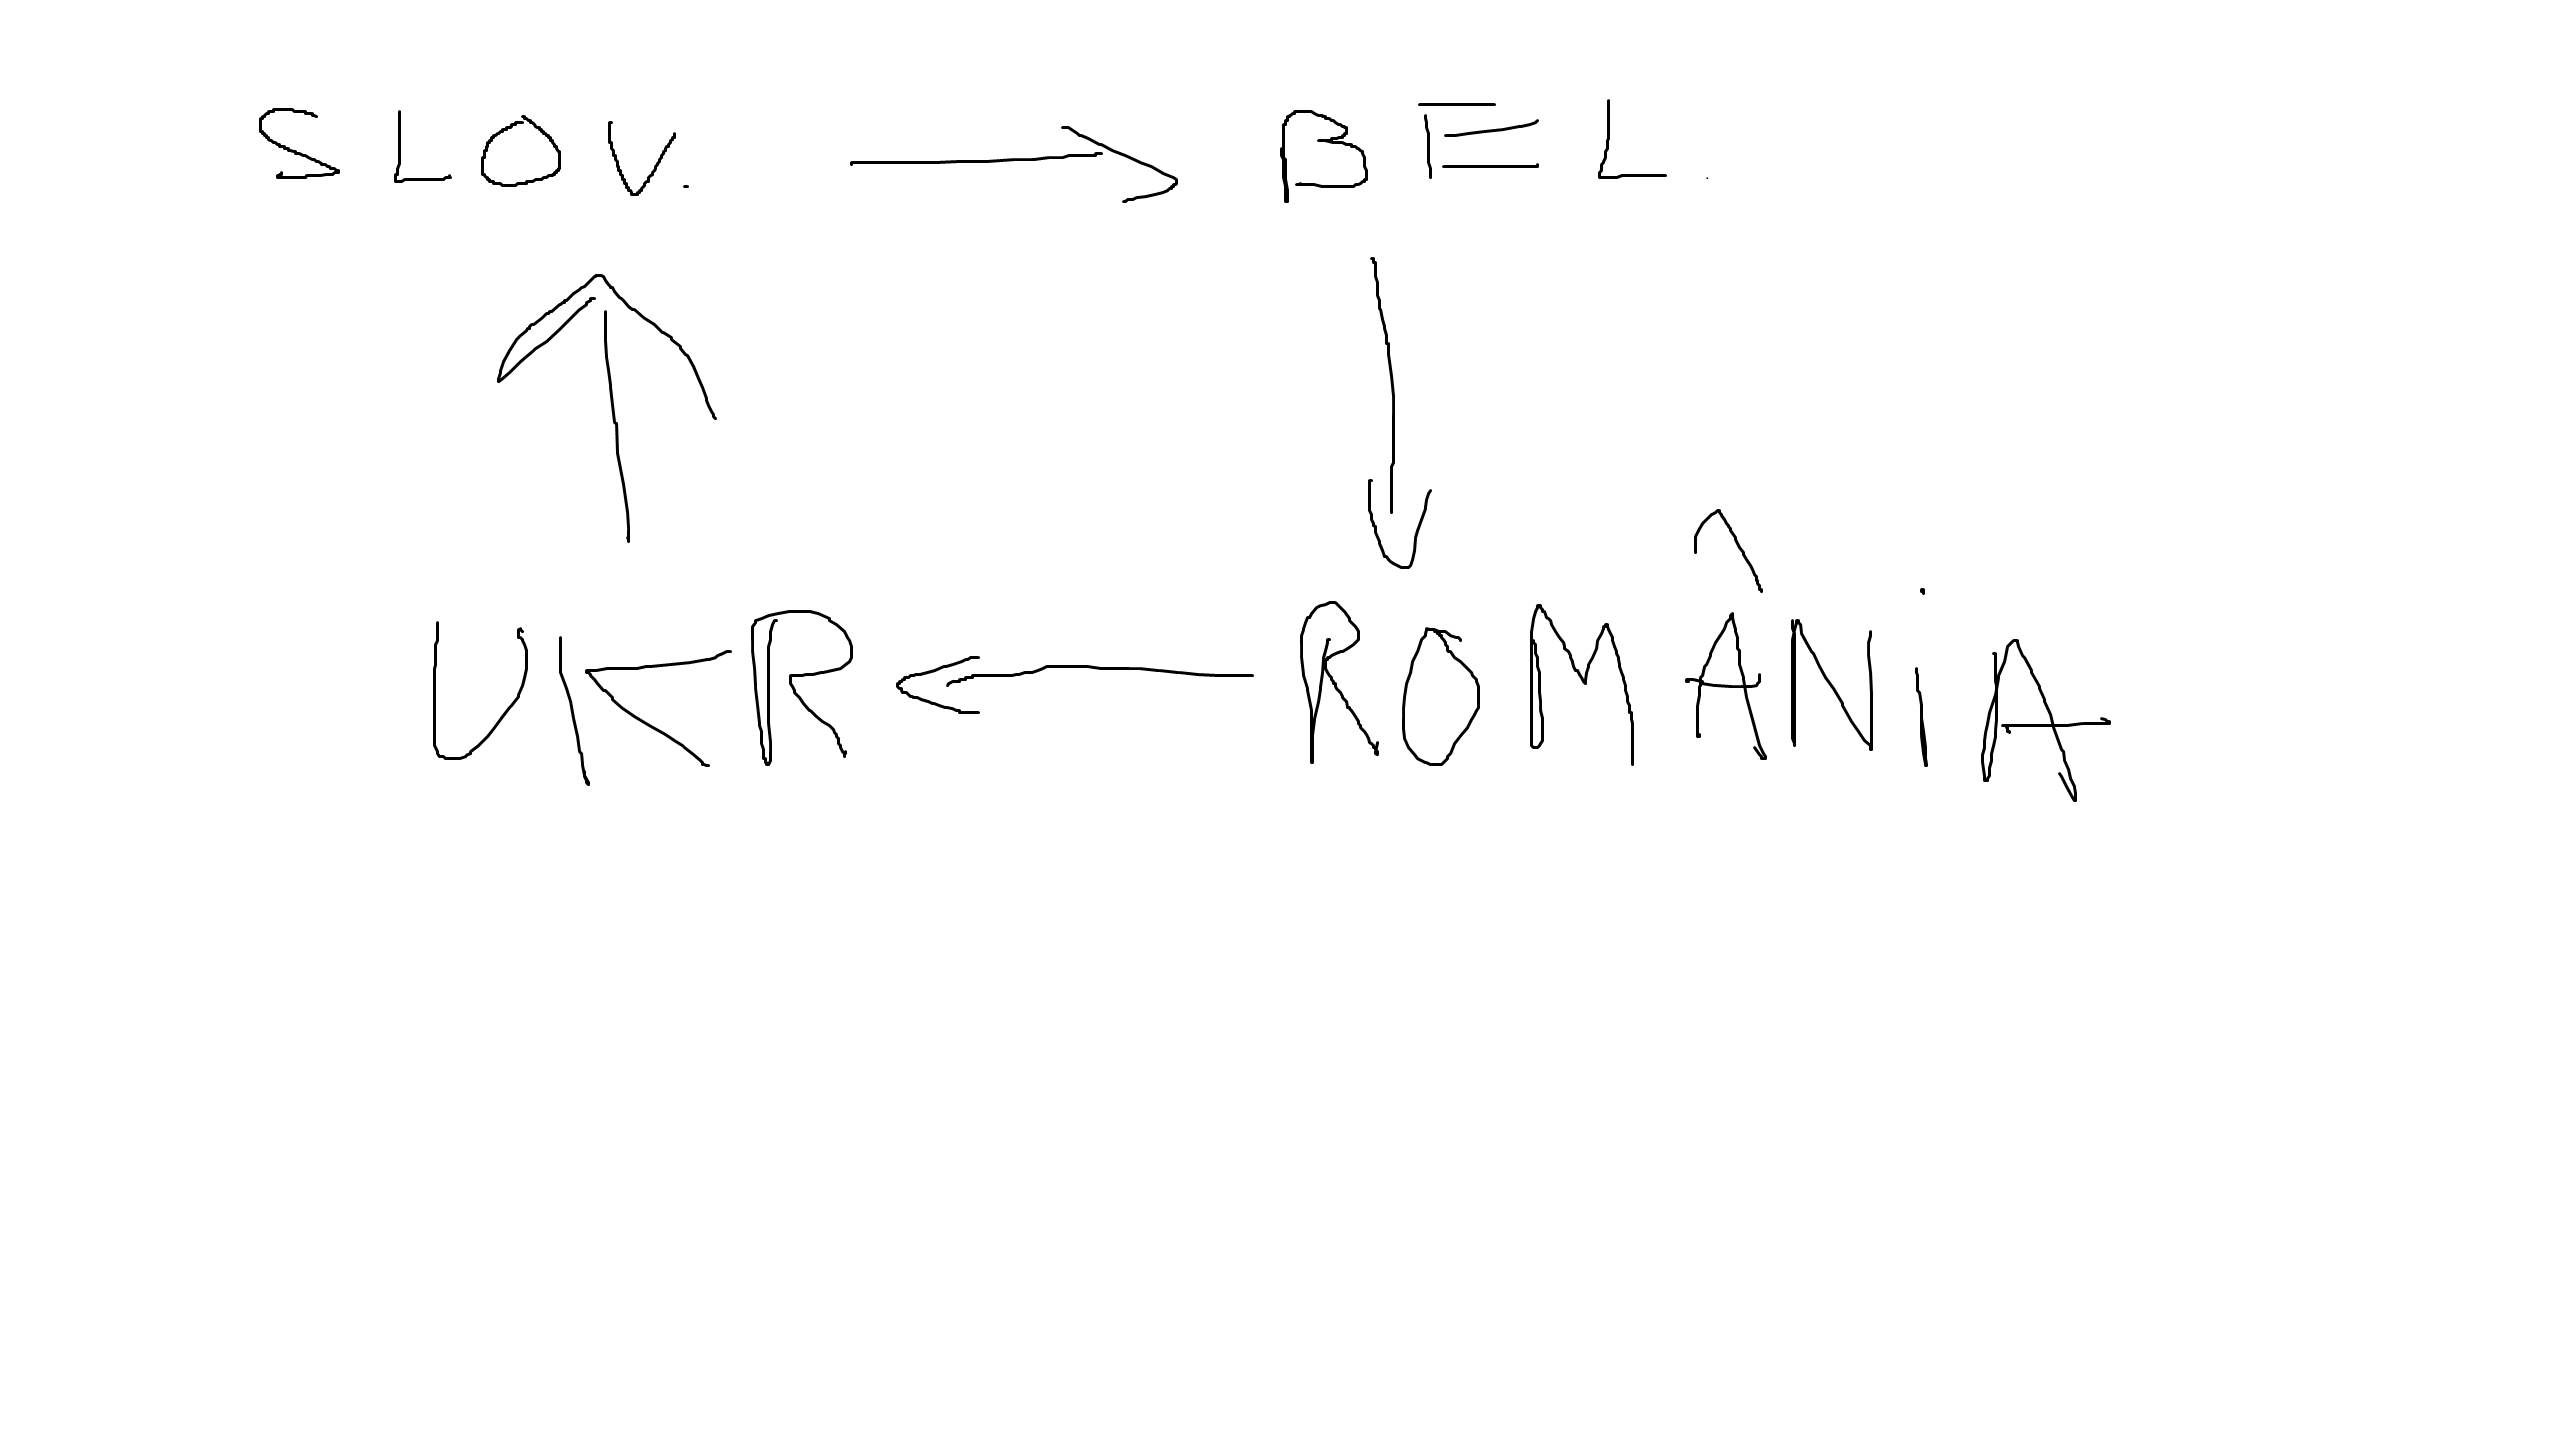 SLOV. → BEL.
UKR ← ROMÂNiA